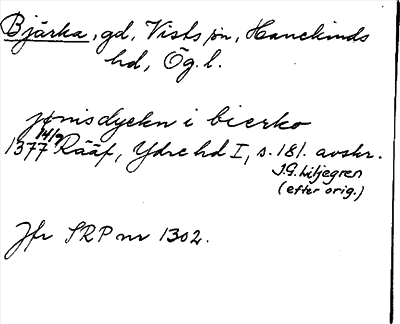 Bjärka, gd, Vists sn, Hanekinds
hd, Ög. l.
jønisdyekn i bierko
1377 14/9 Rääf, Ydre hd I, s. 181. avskr.
J.G. Liljegren
(efter orig.)
Jfr SRP nr 1302.